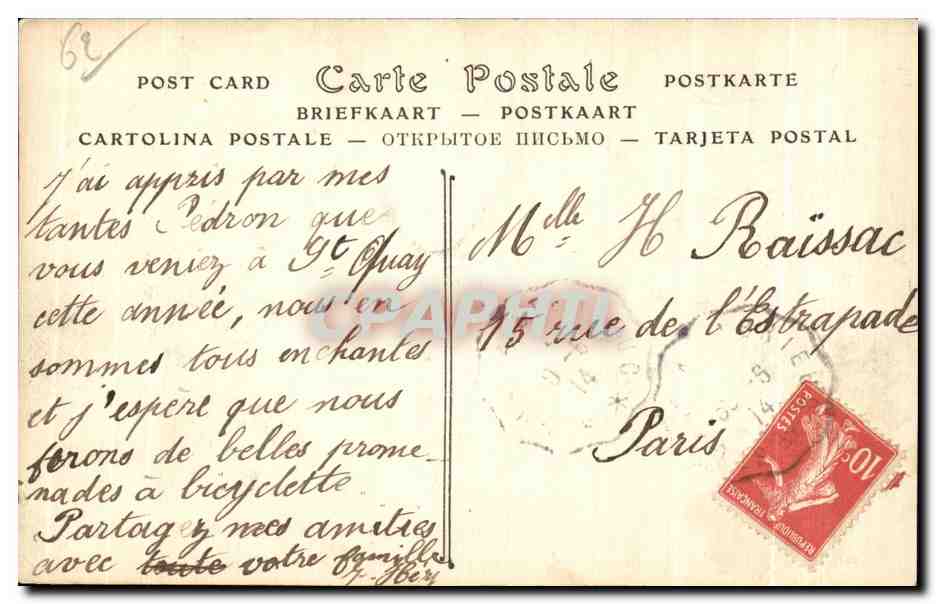 62
POST CARD Carte Postale POSTKARTE
BRIEFKAART — POSTKAART
CARTOLINA POSTALE — ОТКРЫТОЕ ПИСЬМО — TARJETA POSTAL
J'ai appris par mes
tantes Pédron que
vous veniez à St Quay
cette année, nous en
sommes tous enchantés
et j'espère que nous
ferons de belles prome-
nades à bicyclette.
Partagez mes amitiés
avec toute votre famille
Mlle H Raïssac
15 rue de l'Estrapade
Paris
CPAPHIL
14
14
10c
POSTES
REPUBLIQUE FRANÇAISE